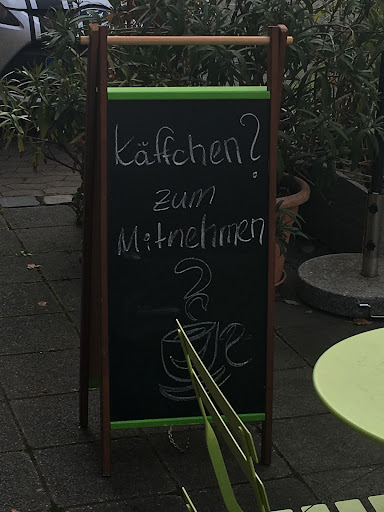 Käffchen?
zum
Mitnehmen